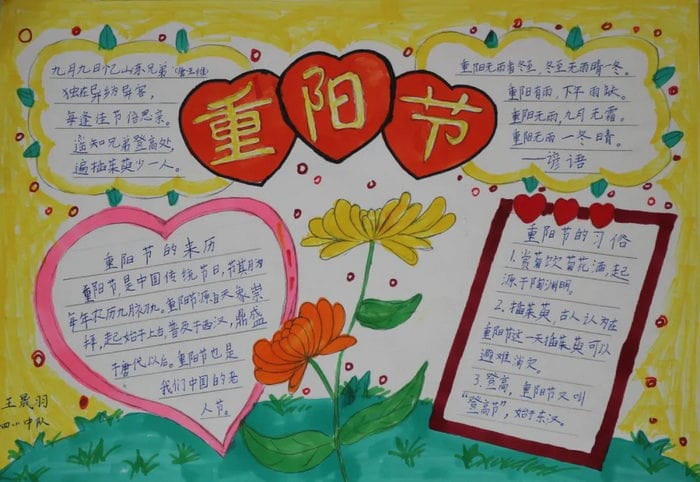 重阳节
九月九日忆山东兄弟(唐王维)
独在异乡异客,
每逢佳节倍思亲。
遥知兄弟登高处,
遍插茱萸少一人。
重阳无雨看冬至,冬至无雨晴一冬。
重阳有雨,下午雨缺。
重阳无雨,九月无霜。
重阳无雨一冬晴。
——谚语
重阳节的来历
重阳节是中国传统节日,节期为
每年农历九月初九。重阳节源自天象崇
拜,起始于上古,普及于西汉,鼎盛
于唐代以后。重阳节也是
我们中国的老
人节。
重阳节的习俗
1.赏菊饮菊花酒,起
源于陶渊明。
2.插茱萸,古人认为在
重阳节这一天插茱萸可以
避难消灾。
3.登高,重阳节又叫
“登高节”,始于东汉。
王晟羽
中队